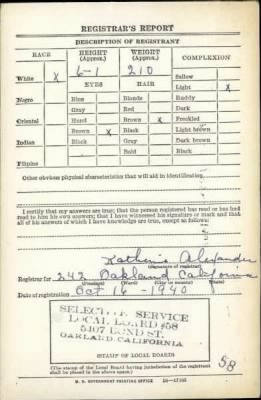 REGISTRAR'S REPORT
DESCRIPTION OF REGISTRANT
RACE HEIGHT (Approx.) WEIGHT (Approx.) COMPLEXION
6-1 210 Sallow
White X EYES HAIR Light X
Negro Blue Blonde Ruddy
Gray Red Dark
Oriental Hazel Brown X Freckled
Brown X Black Light brown
Indian Black Gray Dark brown
Bald Black
Filipino
Other obvious physical characteristics that will aid in identification
I certify that my answers are true; that the person registered has read or has had
read to him his own answers; that I have witnessed his signature or mark and that
all of his answers of which I have knowledge are true, except as follows:
Alexander
(Signature of registrar)
Registrar for 242 Oakland California
(Precinct) (Ward) (City or county) (State)
Date of registration Oct 16 - 1940
SELECTIVE SERVICE
LOCAL BOARD #58
5407 BOND ST.
OAKLAND, CALIFORNIA
STAMP OF LOCAL BOARD
58
(The stamp of the Local Board having jurisdiction of the registrant
shall be placed in the above space.)
U. S. GOVERNMENT PRINTING OFFICE